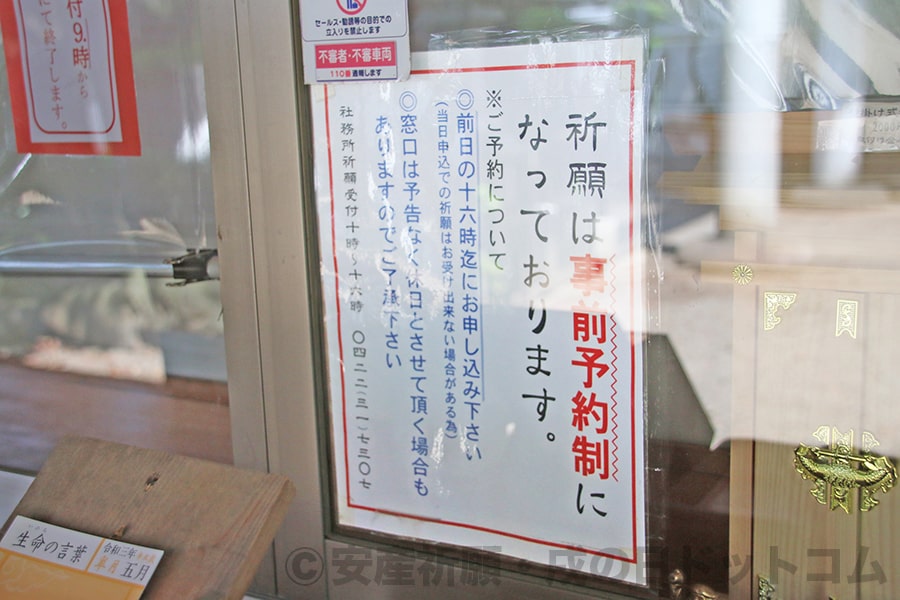 祈願は事前予約制に
なっております。
※ご予約について
◎前日の十六時迄にお申し込み下さい
（当日申込での祈願はお受け出来ない場合がある為）
◎窓口は予告なく休日とさせて頂く場合も
ありますのでご了承下さい
社務所祈願受付十時〜十六時 〇四二二（三一）七三〇七
セールス・勧誘等の目的での
立入りを禁止します
不審者・不審車両
110番通報します
付9時から
にて終了します。
生命の言葉
令和三年
五月
©安産祈願・戌の日ドットコム